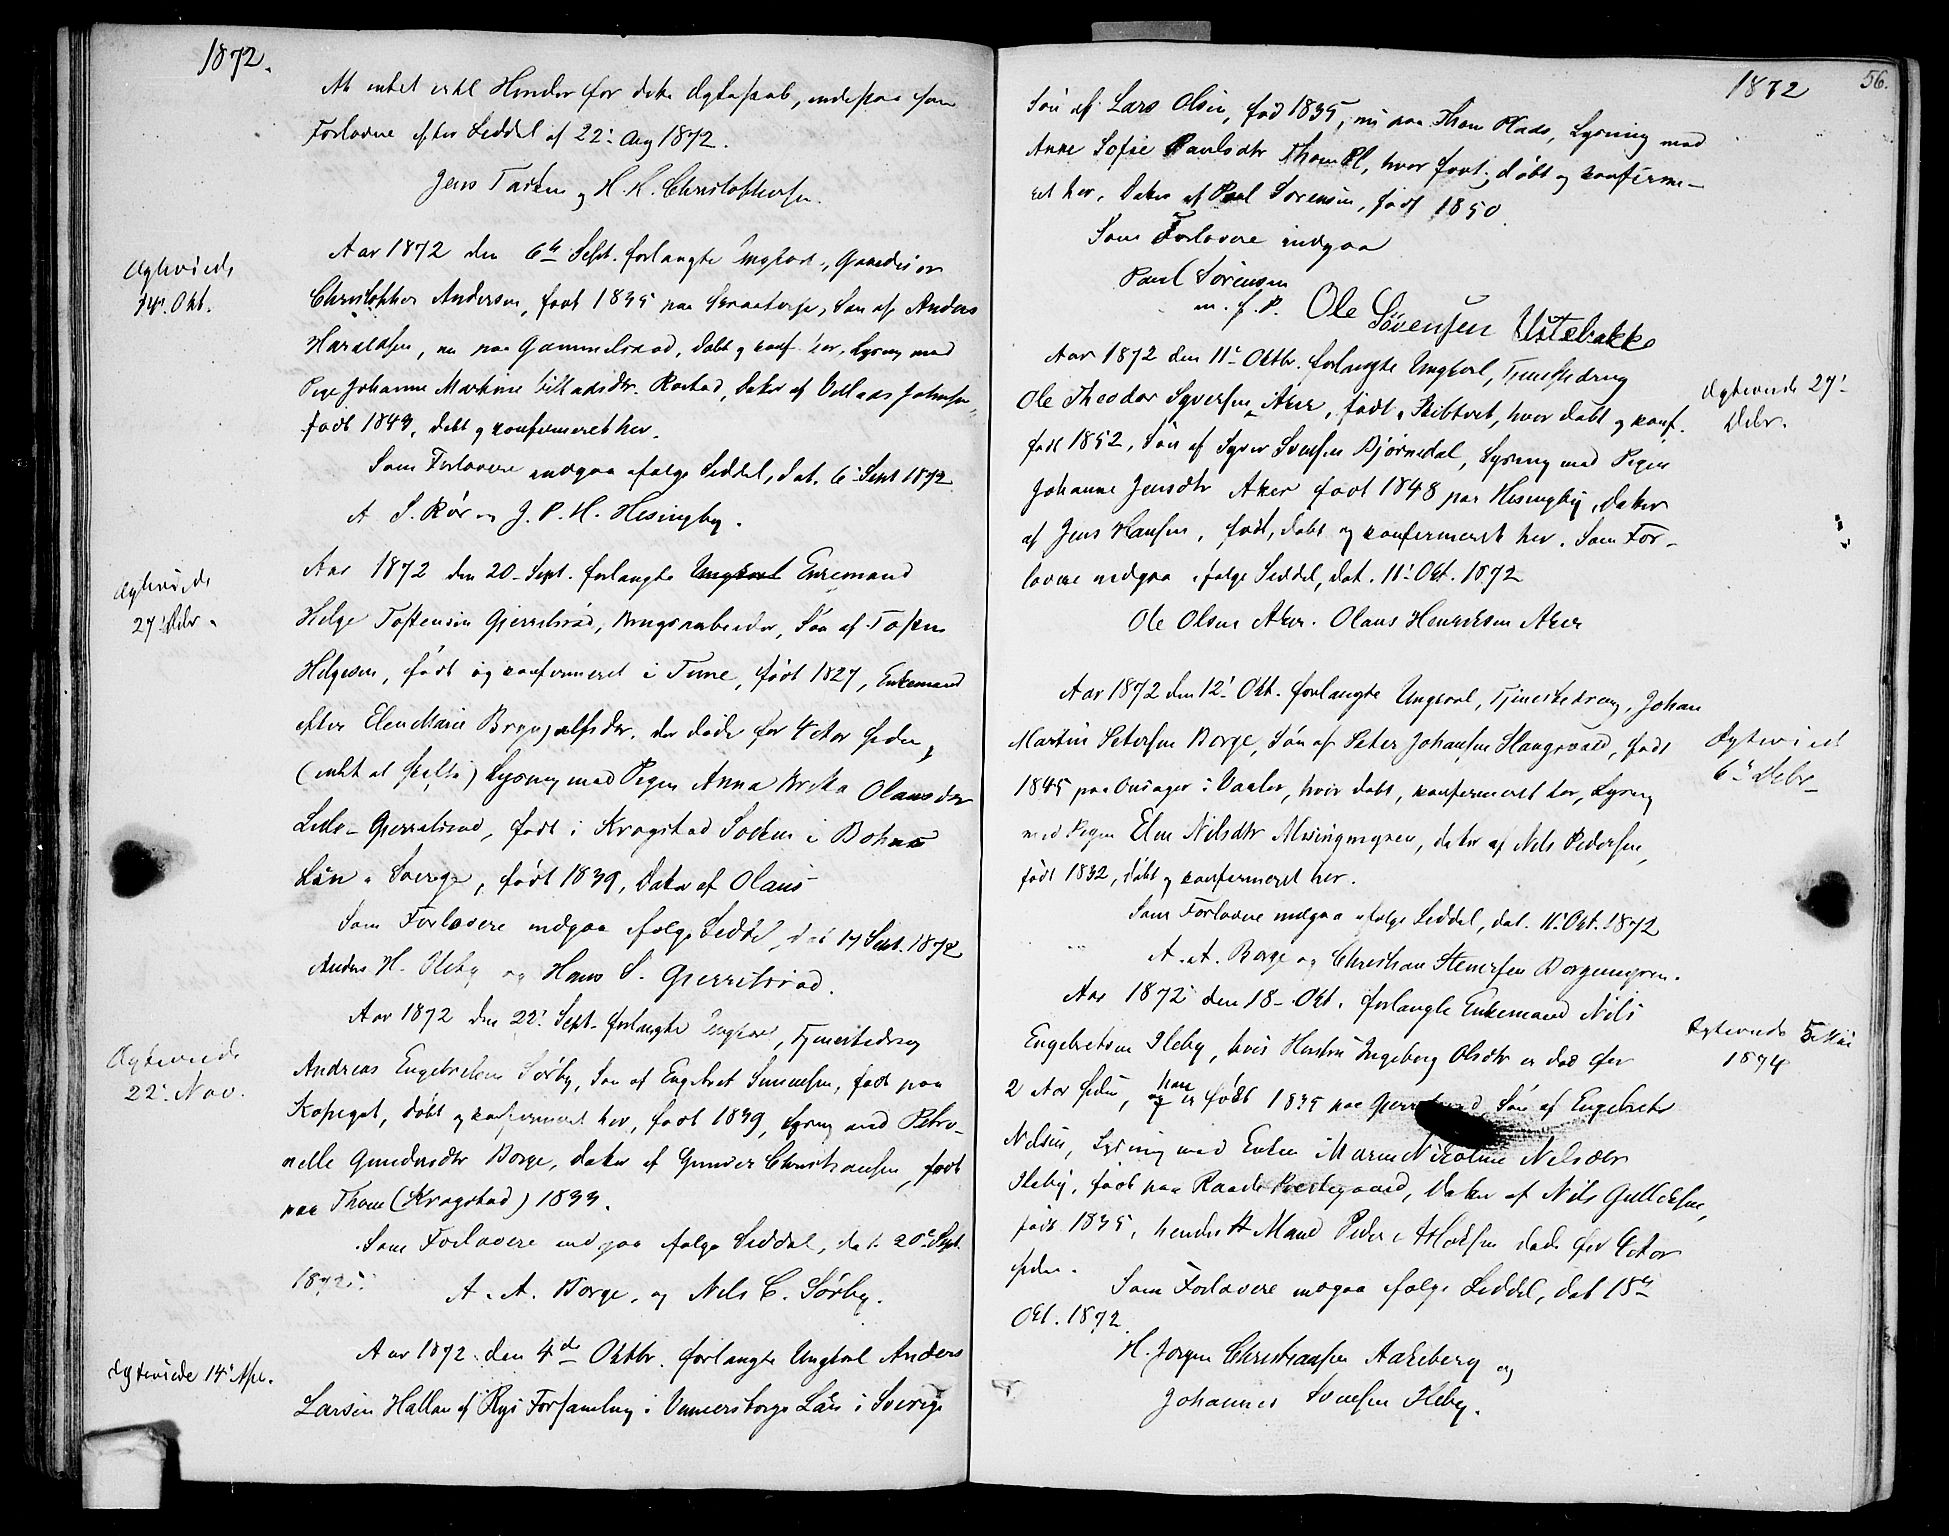 1872.
At intet er til Hinder for dette Ægteskab, indestaa som
Forlovere efter Seddel af 22' Aug 1872.
Jens og H. K. Christophersen.
Ægteviede
14' Okt.
Aar 1872 den 6te Sept. forlangte Ungkarl, Gaardeier
Christopher Andersen, født 1835 paa Søn af Anders
Haraldsen, nu paa Gammelsrød, døbt og konf. her, Lysning med
Pige Johanne Martine Villadsdtr. Rostad, Datter af Villads Johnsen,
født 1843, døbt og konfirmeret her.
Som Forlovere indgaa ifølge Seddel, dat. 6' Sept 1872
A. S. Rør og J. P. H. Hesingby.
Ægteviede
27' Debr.
Aar 1872 den 20- Sept. forlangte Ungkarl Enkemand
Helge Tostensen Gjerrelsrød, Brugsarbeider, Søn af Tosten
Helgesen, født og konfirmeret i Tune, født 1827, Enkemand
efter Elen Marie Brynjulfsdtr. der døde for 4 Aar siden,
(intet at skifte) Lysning med Pigen Anna Brita Olausdtr
Lille-Gjerrelsrød, født i Krogstad Sokn i Bohus
Län i Sverige, født 1839, Datter af Olaus
Som Forlovere indgaa ifølge Seddel, dat 17 Sept. 1872
Anders H. Oleby og Hans S. Gjerrelsrød.
Ægteviede
22' Nov.
Aar 1872 den 22' Sept. forlangte Ungkarl, Tjenestedreng
Andreas Engebretsen Sørby, Søn af Engebret Simensen, født paa
Kopeget, døbt og konfirmeret her, født 1839, Lysning med Petro-
nelle Gundersdtr Borge, Datter af Gunder Christiansen, født
paa Thom (Krogstad) 1833.
Som Forlovere indgaa ifølge Seddel, dat. 20' Sept.
1872.
A. A. Borge, og Nils C. Sørby.
Ægteviede 14' Apl.
Aar 1872 den 4de Oktbr. forlangte Ungkarl Anders
Larsen Hallan af Rys Forsamling i Venersborgs Län i Sverige
1872
56.
Søn af Lars Olsen, fød 1835, nu paa Thom Plads, Lysning med
Anne Sofie Paulsdtr Thom Pl, hvor født, døbt og konfirme-
ret her, Datter af Paul Sørensen, født 1850.
Som Forlovere indgaa
Paul Sørensen
m. f. P. Ole Sørensen Ustebakke
Ægteviede 27'
Debr.
Aar 1872 den 11' Oktbr. forlangte Ungkarl, Tjenestedreng
Ole Theodor Syversen Aker, født i Skibtvet, hvor døbt og konf.
født 1852, Søn af Syver Svensen Bjørnedal, Lysning med Pigen
Johanne Jensdtr Aker født 1848 paa Hesingby, Datter
af Jens Hansen, født, døbt og konfirmeret her. Som For-
lovere indgaa ifølge Seddel, dat. 11' Okt. 1872
Ole Olsen Aker. Olaus Henriksen Aker
Ægteviede
6' Debr
Aar 1872 den 12' Okt. forlangte Ungkarl, Tjenestedreng, Johan
Martin Petersen Borge, Søn af Peter Johansen Slangsvold, født
1845 paa Onsager i Vaaler, hvor døbt, konfirmeret her, Lysning
med Pigen Elen Nilsdtr Mesingmyren, Datter af Nils Pedersen,
født 1832, døbt og konfirmeret her.
Som Forlovere indgaa ifølge Seddel, dat. 11' Okt. 1872
A. A. Borge og Christian Stenersen Borgemyren.
Ægteviede 5 Mai
1874
Aar 1872 den 18- Okt. forlangte Enkemand Nils
Engebretsen Ileby, hvis Hustru Ingeborg Olsdtr er død for
2 Aar siden, han
og er født 1835 paa Søn af Engebret
Nilsen, Lysning med Enken Maren Nicoline Nilsdtr
Ileby, født paa Raade Prestegaard, Datter af Nils Gulleksen,
født 1835, hendes Mand Peder Aslaksen døde for 6 Aar
siden.
Som Forlovere indgaa ifølge Seddel, dat 18de
Okt. 1872.
H. Jørgen Christiansen Aakeberg og
Johannes Svensen Ileby.